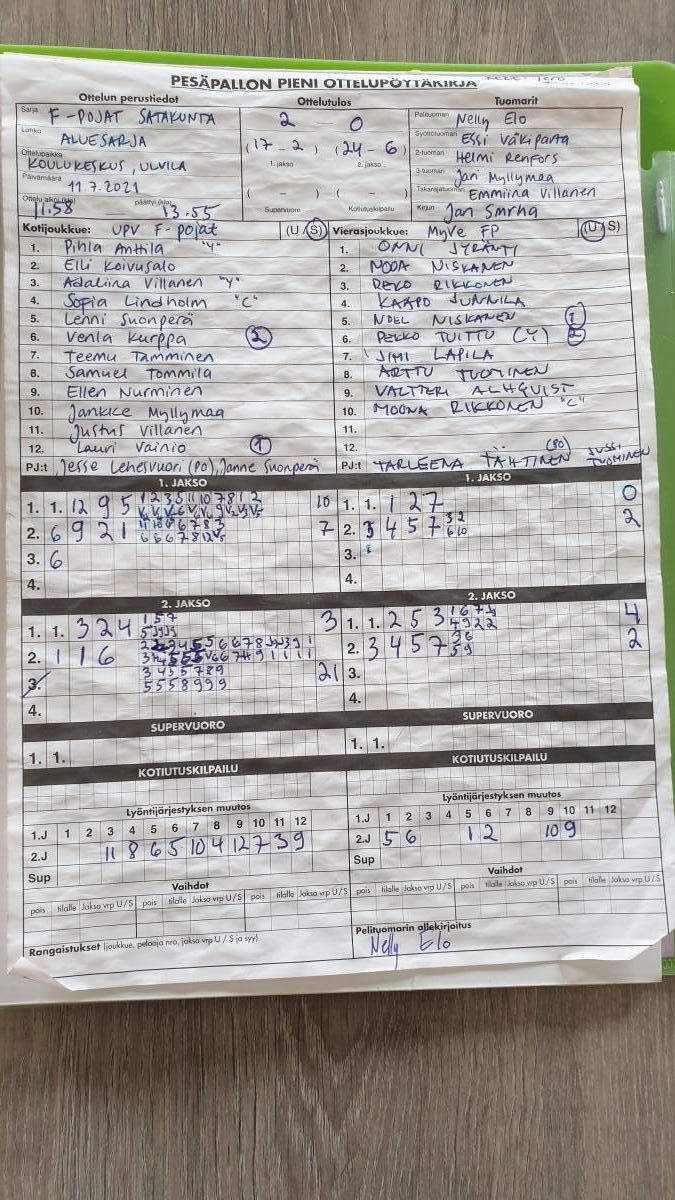 PESÄPALLON PIENI OTTELUPÖYTÄKIRJA
Ottelun perustiedot
Ottelutulos
Tuomarit
Sarja F-POJAT SATAKUNTA
Lohko ALUESARJA
Ottelupaikka KOULUKESKUS, ULVILA
Päivämäärä 11.7.2021
Ottelu alkoi (klo) 11.58 päättyi (klo) 13.55
2 0
(17 - 2) (24 - 6)
1. jakso 2. jakso
( - ) ( - )
Supervuoro Kotiutuskilpailu
Pelituomari Nelly Elo
Syöttötuomari Essi Väkiparta
2-tuomari Helmi Renfors
3-tuomari Jari Myllymaa
Takarajatuomari Emmiina Villanen
Kirjuri Jan Smrha
Kotijoukkue: UPV F-pojat (U / S)
1. Pihla Anttila "Y"
2. Elli Koivusalo
3. Adaliina Villanen "Y"
4. Sofia Lindholm "C"
5. Lenni Suonperä
6. Venla Kurppa 2
7. Teemu Tamminen
8. Samuel Tommila
9. Ellen Nurminen
10. Jankke Myllymaa
11. Justus Villanen
12. Lauri Vainio 1
PJ:t Jesse Lehesvuori (PO), Janne Suonperä
Vierasjoukkue: MyVe FP (U / S)
1. ONNI JYRÄNTI
2. NOOA NISKANEN
3. REKO RIKKONEN
4. KAAPO JUNNILA
5. NOEL NISKANEN 1
6. PEKKO TUITTU (Y) 2
7. JIMI LAPILA
8. ARTTU TUOMINEN
9. VALTTERI ALHQVIST
10. MOONA RIKKONEN "C"
11.
12.
PJ:t TARLEENA TÄHTINEN (PO) JUSSI TUOMINEN
1. JAKSO
1. 1. 12 9 5 10
2. 6 9 2 1 7
3. 6
4.
1. JAKSO
1. 1. 1 2 7 0
2. 3 4 5 7 2
3.
4.
2. JAKSO
1. 1. 3 2 4 3
2. 1 1 6 21
3.
4.
2. JAKSO
1. 1. 2 5 3 4
2. 3 4 5 7 2
3.
4.
SUPERVUORO
1. 1.
SUPERVUORO
1. 1.
KOTIUTUSKILPAILU
KOTIUTUSKILPAILU
Lyöntijärjestyksen muutos
1.J 1 2 3 4 5 6 7 8 9 10 11 12
2.J 11 8 6 5 10 4 12 7 3 9
Sup
Lyöntijärjestyksen muutos
1.J 1 2 3 4 5 6 7 8 9 10 11 12
2.J 5 6 1 2 10 9
Sup
Vaihdot
pois tilalle Jakso vrp U/S pois tilalle Jakso vrp U/S pois tilalle Jakso vrp U/S
Vaihdot
pois tilalle Jakso vrp U/S pois tilalle Jakso vrp U/S pois tilalle Jakso vrp U/S
Rangaistukset (joukkue, pelaaja nro, jakso vrp U / S ja syy)
Pelituomarin allekirjoitus
Nelly Elo